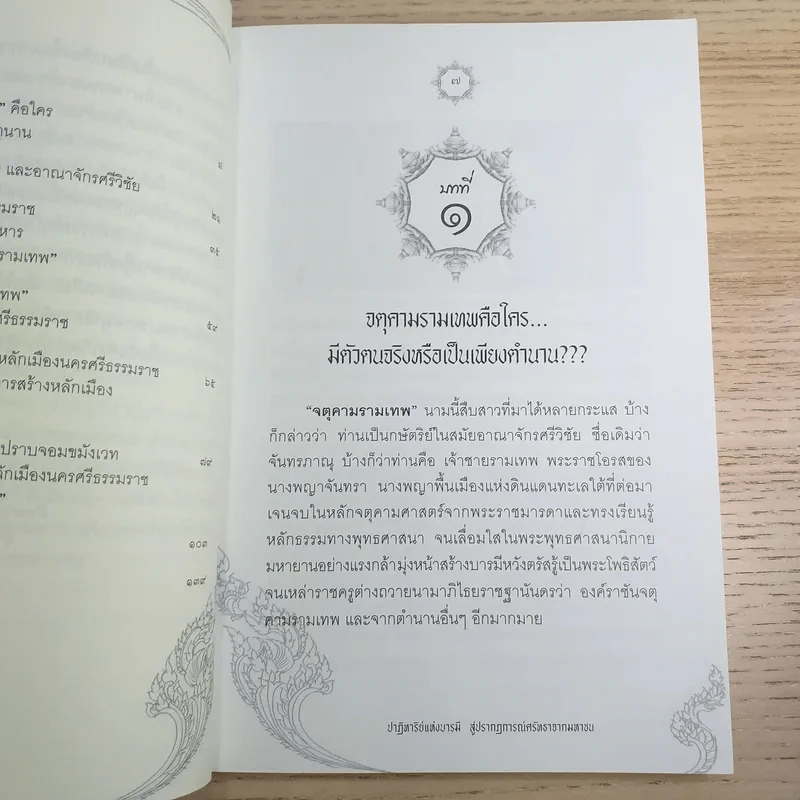 ” คือใคร
และอาณาจักรศรีวิชัย
๒๑
๓๕
รามเทพ”
๕๙
หลักเมืองนครศรีธรรมราช
๖๕
การสร้างหลักเมือง
ปราบจอมขมังเวท
๘๙
หลักเมืองนครศรีธรรมราช
๑๐๓
๑๓๙
๗
บทที่
๑
จตุคามรามเทพคือใคร...
มีตัวตนจริงหรือเป็นเพียงตำนาน???
“จตุคามรามเทพ” นามนี้สืบสาวที่มาได้หลายกระแส บ้าง
ก็กล่าวว่า ท่านเป็นกษัตริย์ในสมัยอาณาจักรศรีวิชัย ชื่อเดิมว่า
จันทรภาณุ บ้างก็ว่าท่านคือ เจ้าชายรามเทพ พระราชโอรสของ
นางพญาจันทรา นางพญาพื้นเมืองแห่งดินแดนทะเลใต้ที่ต่อมา
เจนจบในหลักจตุคามศาสตร์จากพระราชมารดาและทรงเรียนรู้
หลักธรรมทางพุทธศาสนา จนเลื่อมใสในพระพุทธศาสนานิกาย
มหายานอย่างแรงกล้ามุ่งหน้าสร้างบารมีหวังตรัสรู้เป็นพระโพธิสัตว์
จนเหล่าราชครูต่างถวายนามาภิไธยราชฐานันดรว่า องค์ราชันจตุ
คามรามเทพ และจากตำนานอื่นๆ อีกมากมาย
ปาฏิหาริย์แห่งบารมี สู่ปรากฏการณ์ศรัทธาจากมหาชน